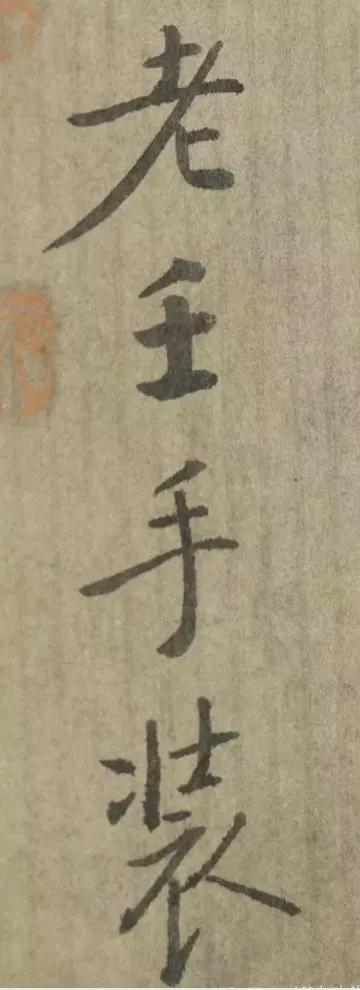 老壬手装